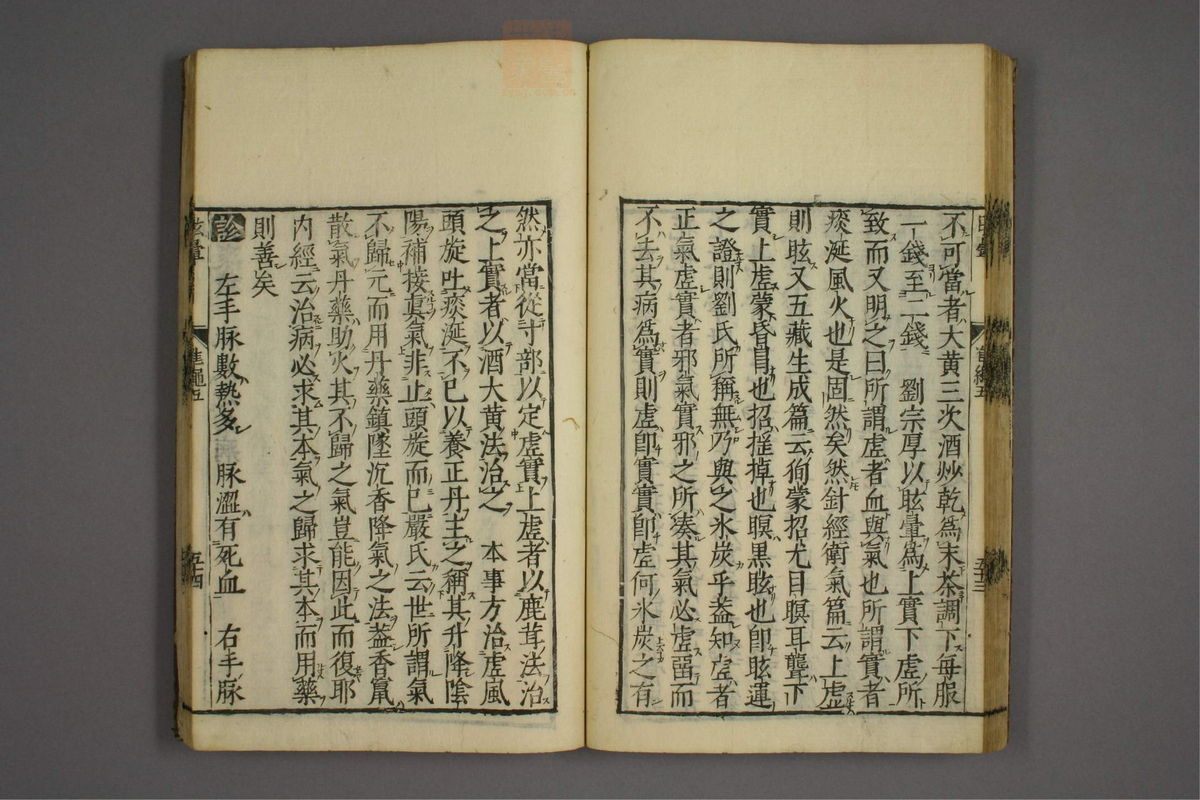 不可當者大黃三次酒炒乾為末茶調下每服
一錢至二錢　劉宗厚以眩暈為上實下虛所
致而又明之曰所謂虛者血與氣也所謂實者
痰涎風火也是固然矣然針經衛氣篇云上虛
則眩又五藏生成篇云徇蒙招尤目瞑耳聾下
實上虛蒙昏冒也招搖掉也瞑黑眩也即眩運
之證則劉氏所稱無乃與之氷炭乎蓋知虛者
正氣虛實者邪氣實邪之所湊其氣必虛畱而
不去其病為實則虛即實實即虛何氷炭之有
然亦當從寸部以定虛實上虛者以鹿茸法治
之上實者以酒大黃法治之　本事方治虛風
頭旋吐痰涎不已以養正丹主之稱其升降陰
陽補接眞氣非止頭旋而已嚴氏云世所謂氣
不歸元而用丹藥鎮墜沉香降氣之法蓋香竄
散氣丹藥助火其不歸之氣豈能因此而復耶
内經云治病必求其本氣之歸求其本而用藥
則善矣
診　左手脉數熱多　脉澀有死血　右手脉
眩暈
準繩五
五十四